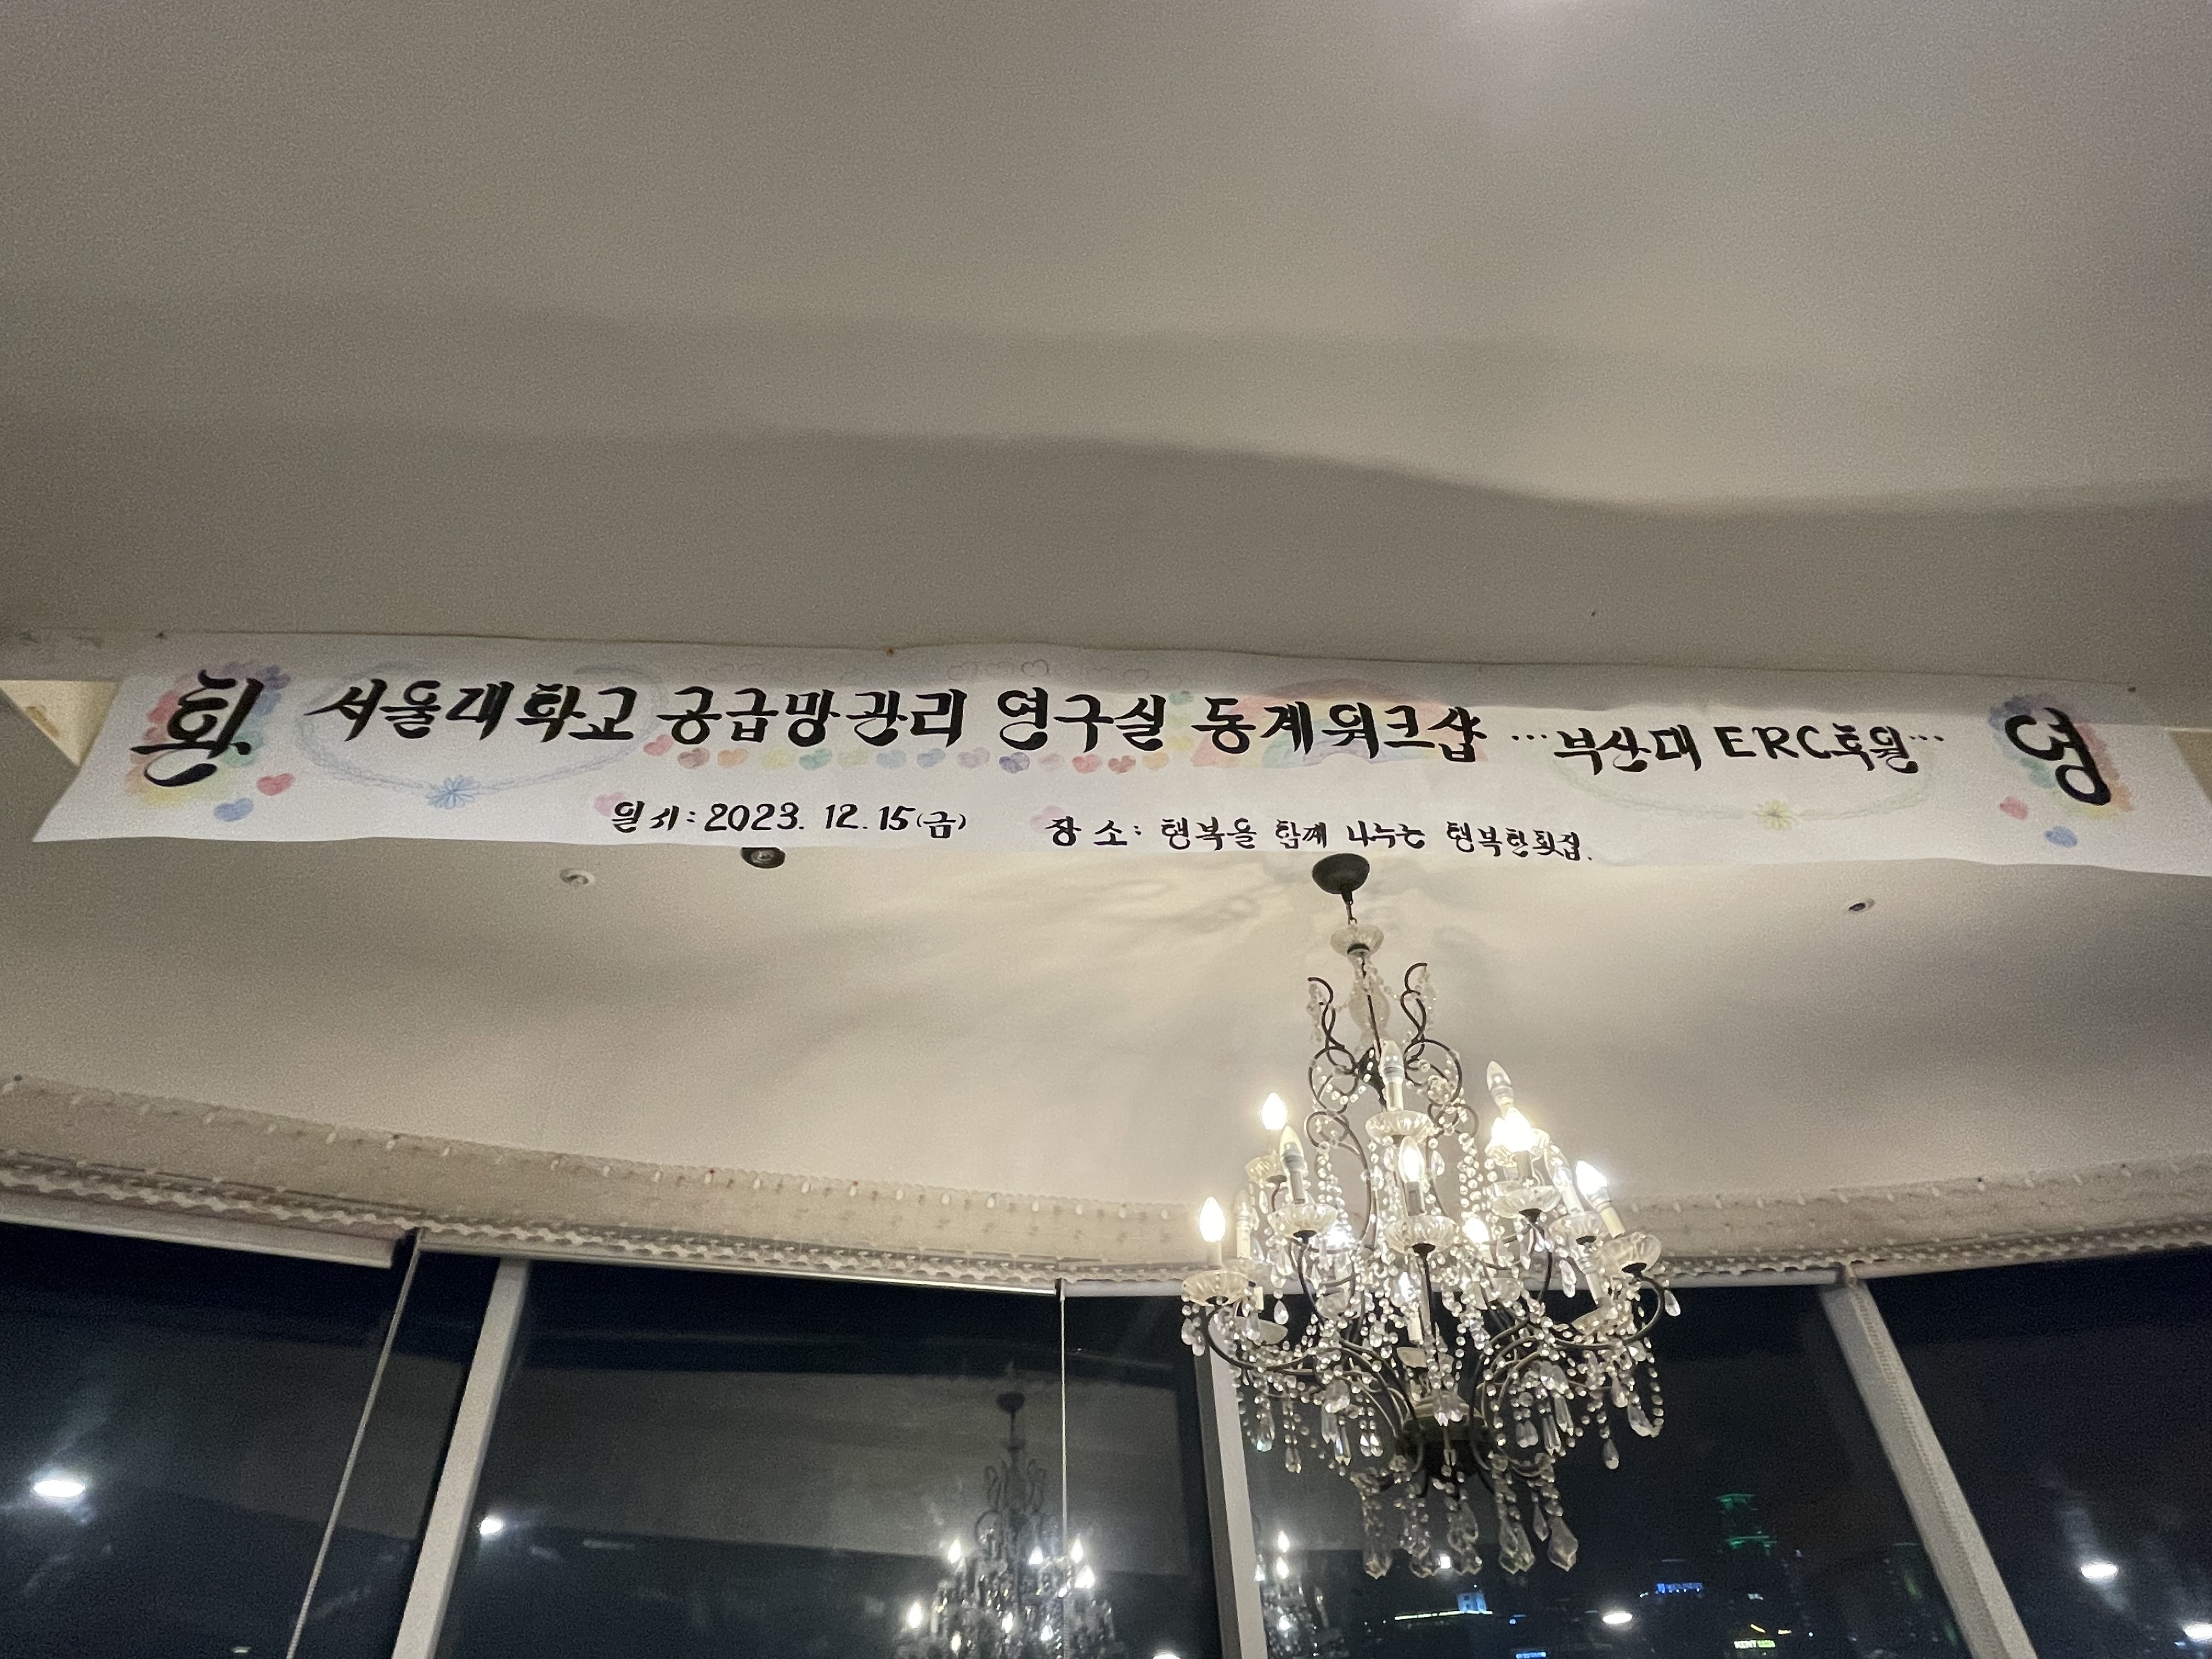 환 서울대학교 공급망관리 연구실 동계워크샵 …부산대 ERC후원… 영
일시: 2023. 12. 15(금) 장소: 행복을 함께 나누는 행복한횟집.